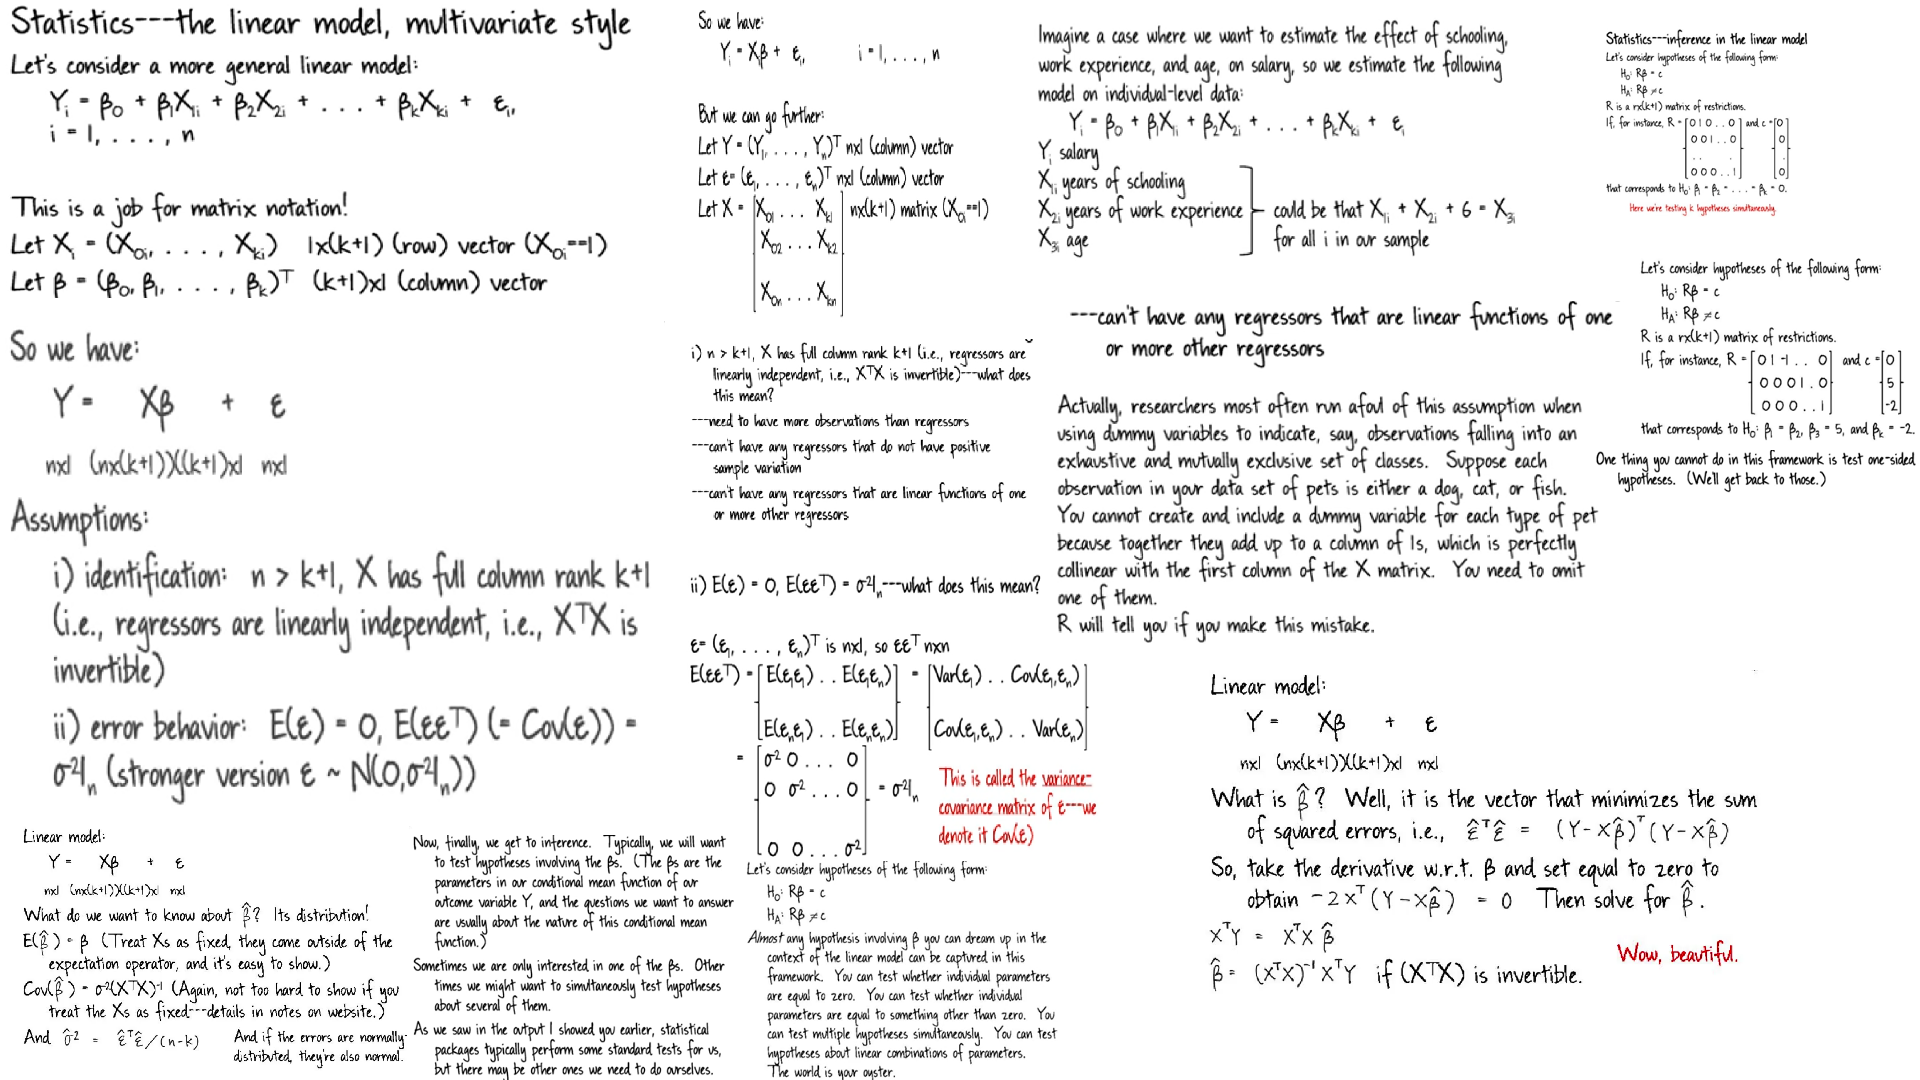 Statistics---the linear model, multivariate style
Let's consider a more general linear model:
Yᵢ = β₀ + β₁X₁ᵢ + β₂X₂ᵢ + . . . + βₖXₖᵢ + εᵢ,
i = 1, . . . , n
This is a job for matrix notation!
Let Xᵢ = (X₀ᵢ, . . . , Xₖᵢ) 1x(k+1) (row) vector (X₀ᵢ==1)
Let β = (β₀, β₁, . . . , βₖ)ᵀ (k+1)x1 (column) vector
So we have:
Y = Xβ + ε
nx1 (nx(k+1))((k+1)x1 nx1
Assumptions:
i) identification: n > k+1, X has full column rank k+1
(i.e., regressors are linearly independent, i.e., XᵀX is
invertible)
ii) error behavior: E(ε) = 0, E(εεᵀ) (= Cov(ε)) =
σ²Iₙ (stronger version ε ~ N(0,σ²Iₙ))
Linear model:
Y = Xβ + ε
nx1 (nx(k+1))((k+1)x1 nx1
What do we want to know about β̂? Its distribution!
E(β̂) = β (Treat Xs as fixed, they come outside of the
expectation operator, and it's easy to show.)
Cov(β̂) = σ²(XᵀX)⁻¹ (Again, not too hard to show if you
treat the Xs as fixed---details in notes on website.)
And σ̂² = ε̂ᵀε̂/(n-k)
And if the errors are normally
distributed, they're also normal.
Now, finally, we get to inference. Typically, we will want
to test hypotheses involving the βs. (The βs are the
parameters in our conditional mean function of our
outcome variable Y, and the questions we want to answer
are usually about the nature of this conditional mean
function.)
Sometimes we are only interested in one of the βs. Other
times we might want to simultaneously test hypotheses
about several of them.
As we saw in the output I showed you earlier, statistical
packages typically perform some standard tests for us,
but there may be other ones we need to do ourselves.
So we have:
Yᵢ = Xᵢβ + εᵢ, i = 1, . . . , n
But we can go further:
Let Y = (Y₁, . . . , Yₙ)ᵀ nx1 (column) vector
Let ε= (ε₁, . . . , εₙ)ᵀ nx1 (column) vector
Let X = [X₀₁ . . . Xₖ₁ nx(k+1) matrix (X₀ᵢ==1)
X₀₂ . . . Xₖ₂
X₀ₙ . . . Xₖₙ]
i) n > k+1, X has full column rank k+1 (i.e., regressors are
linearly independent, i.e., XᵀX is invertible)---what does
this mean?
---need to have more observations than regressors
---can't have any regressors that do not have positive
sample variation
---can't have any regressors that are linear functions of one
or more other regressors
ii) E(ε) = 0, E(εεᵀ) = σ²Iₙ---what does this mean?
ε= (ε₁, . . . , εₙ)ᵀ is nx1, so εεᵀ nxn
E(εεᵀ) = [E(ε₁ε₁) . . E(ε₁εₙ)] = [Var(ε₁) . . Cov(ε₁,εₙ)]
[E(εₙε₁) . . E(εₙεₙ)] [Cov(ε₁,εₙ) . . Var(εₙ)]
= [σ² 0 . . . 0
0 σ² . . . 0] = σ²Iₙ
0 0 . . . σ²]
This is called the variance-
covariance matrix of ε---we
denote it Cov(ε)
Let's consider hypotheses of the following form:
H₀: Rβ = c
Hₐ: Rβ ≠ c
Almost any hypothesis involving β you can dream up in the
context of the linear model can be captured in this
framework. You can test whether individual parameters
are equal to zero. You can test whether individual
parameters are equal to something other than zero. You
can test multiple hypotheses simultaneously. You can test
hypotheses about linear combinations of parameters.
The world is your oyster.
Imagine a case where we want to estimate the effect of schooling,
work experience, and age, on salary, so we estimate the following
model on individual-level data:
Yᵢ = β₀ + β₁X₁ᵢ + β₂X₂ᵢ + . . . + βₖXₖᵢ + εᵢ
Yᵢ salary
X₁ᵢ years of schooling
X₂ᵢ years of work experience
X₃ᵢ age
could be that X₁ᵢ + X₂ᵢ + 6 = X₃ᵢ
for all i in our sample
---can't have any regressors that are linear functions of one
or more other regressors
Actually, researchers most often run afoul of this assumption when
using dummy variables to indicate, say, observations falling into an
exhaustive and mutually exclusive set of classes. Suppose each
observation in your data set of pets is either a dog, cat, or fish.
You cannot create and include a dummy variable for each type of pet
because together they add up to a column of 1s, which is perfectly
collinear with the first column of the X matrix. You need to omit
one of them.
R will tell you if you make this mistake.
Linear model:
Y = Xβ + ε
nx1 (nx(k+1))((k+1)x1 nx1
What is β̂? Well, it is the vector that minimizes the sum
of squared errors, i.e., ε̂ᵀε̂ = (Y-Xβ̂)ᵀ(Y-Xβ̂)
So, take the derivative w.r.t. β and set equal to zero to
obtain -2Xᵀ(Y-Xβ̂) = 0 Then solve for β̂.
XᵀY = XᵀXβ̂
β̂ = (XᵀX)⁻¹XᵀY if (XᵀX) is invertible.
Wow, beautiful.
Statistics---inference in the linear model
Let's consider hypotheses of the following form:
H₀: Rβ = c
Hₐ: Rβ ≠ c
R is a rx(k+1) matrix of restrictions.
If, for instance, R = [0 1 0 . . 0] and c = [0]
0 0 1 . . 0 0
. . . .
0 0 0 . . 1 0
that corresponds to H₀: β₁ = β₂ = . . . = βₖ = 0.
Here we're testing k hypotheses simultaneously.
Let's consider hypotheses of the following form:
H₀: Rβ = c
Hₐ: Rβ ≠ c
R is a rx(k+1) matrix of restrictions.
If, for instance, R = [0 1 -1 . . 0] and c = [0]
0 0 0 1 . 0 5
0 0 0 . . 1 -2
that corresponds to H₀: β₁ = β₂, β₃ = 5, and βₖ = -2.
One thing you cannot do in this framework is test one-sided
hypotheses. (We'll get back to those.)